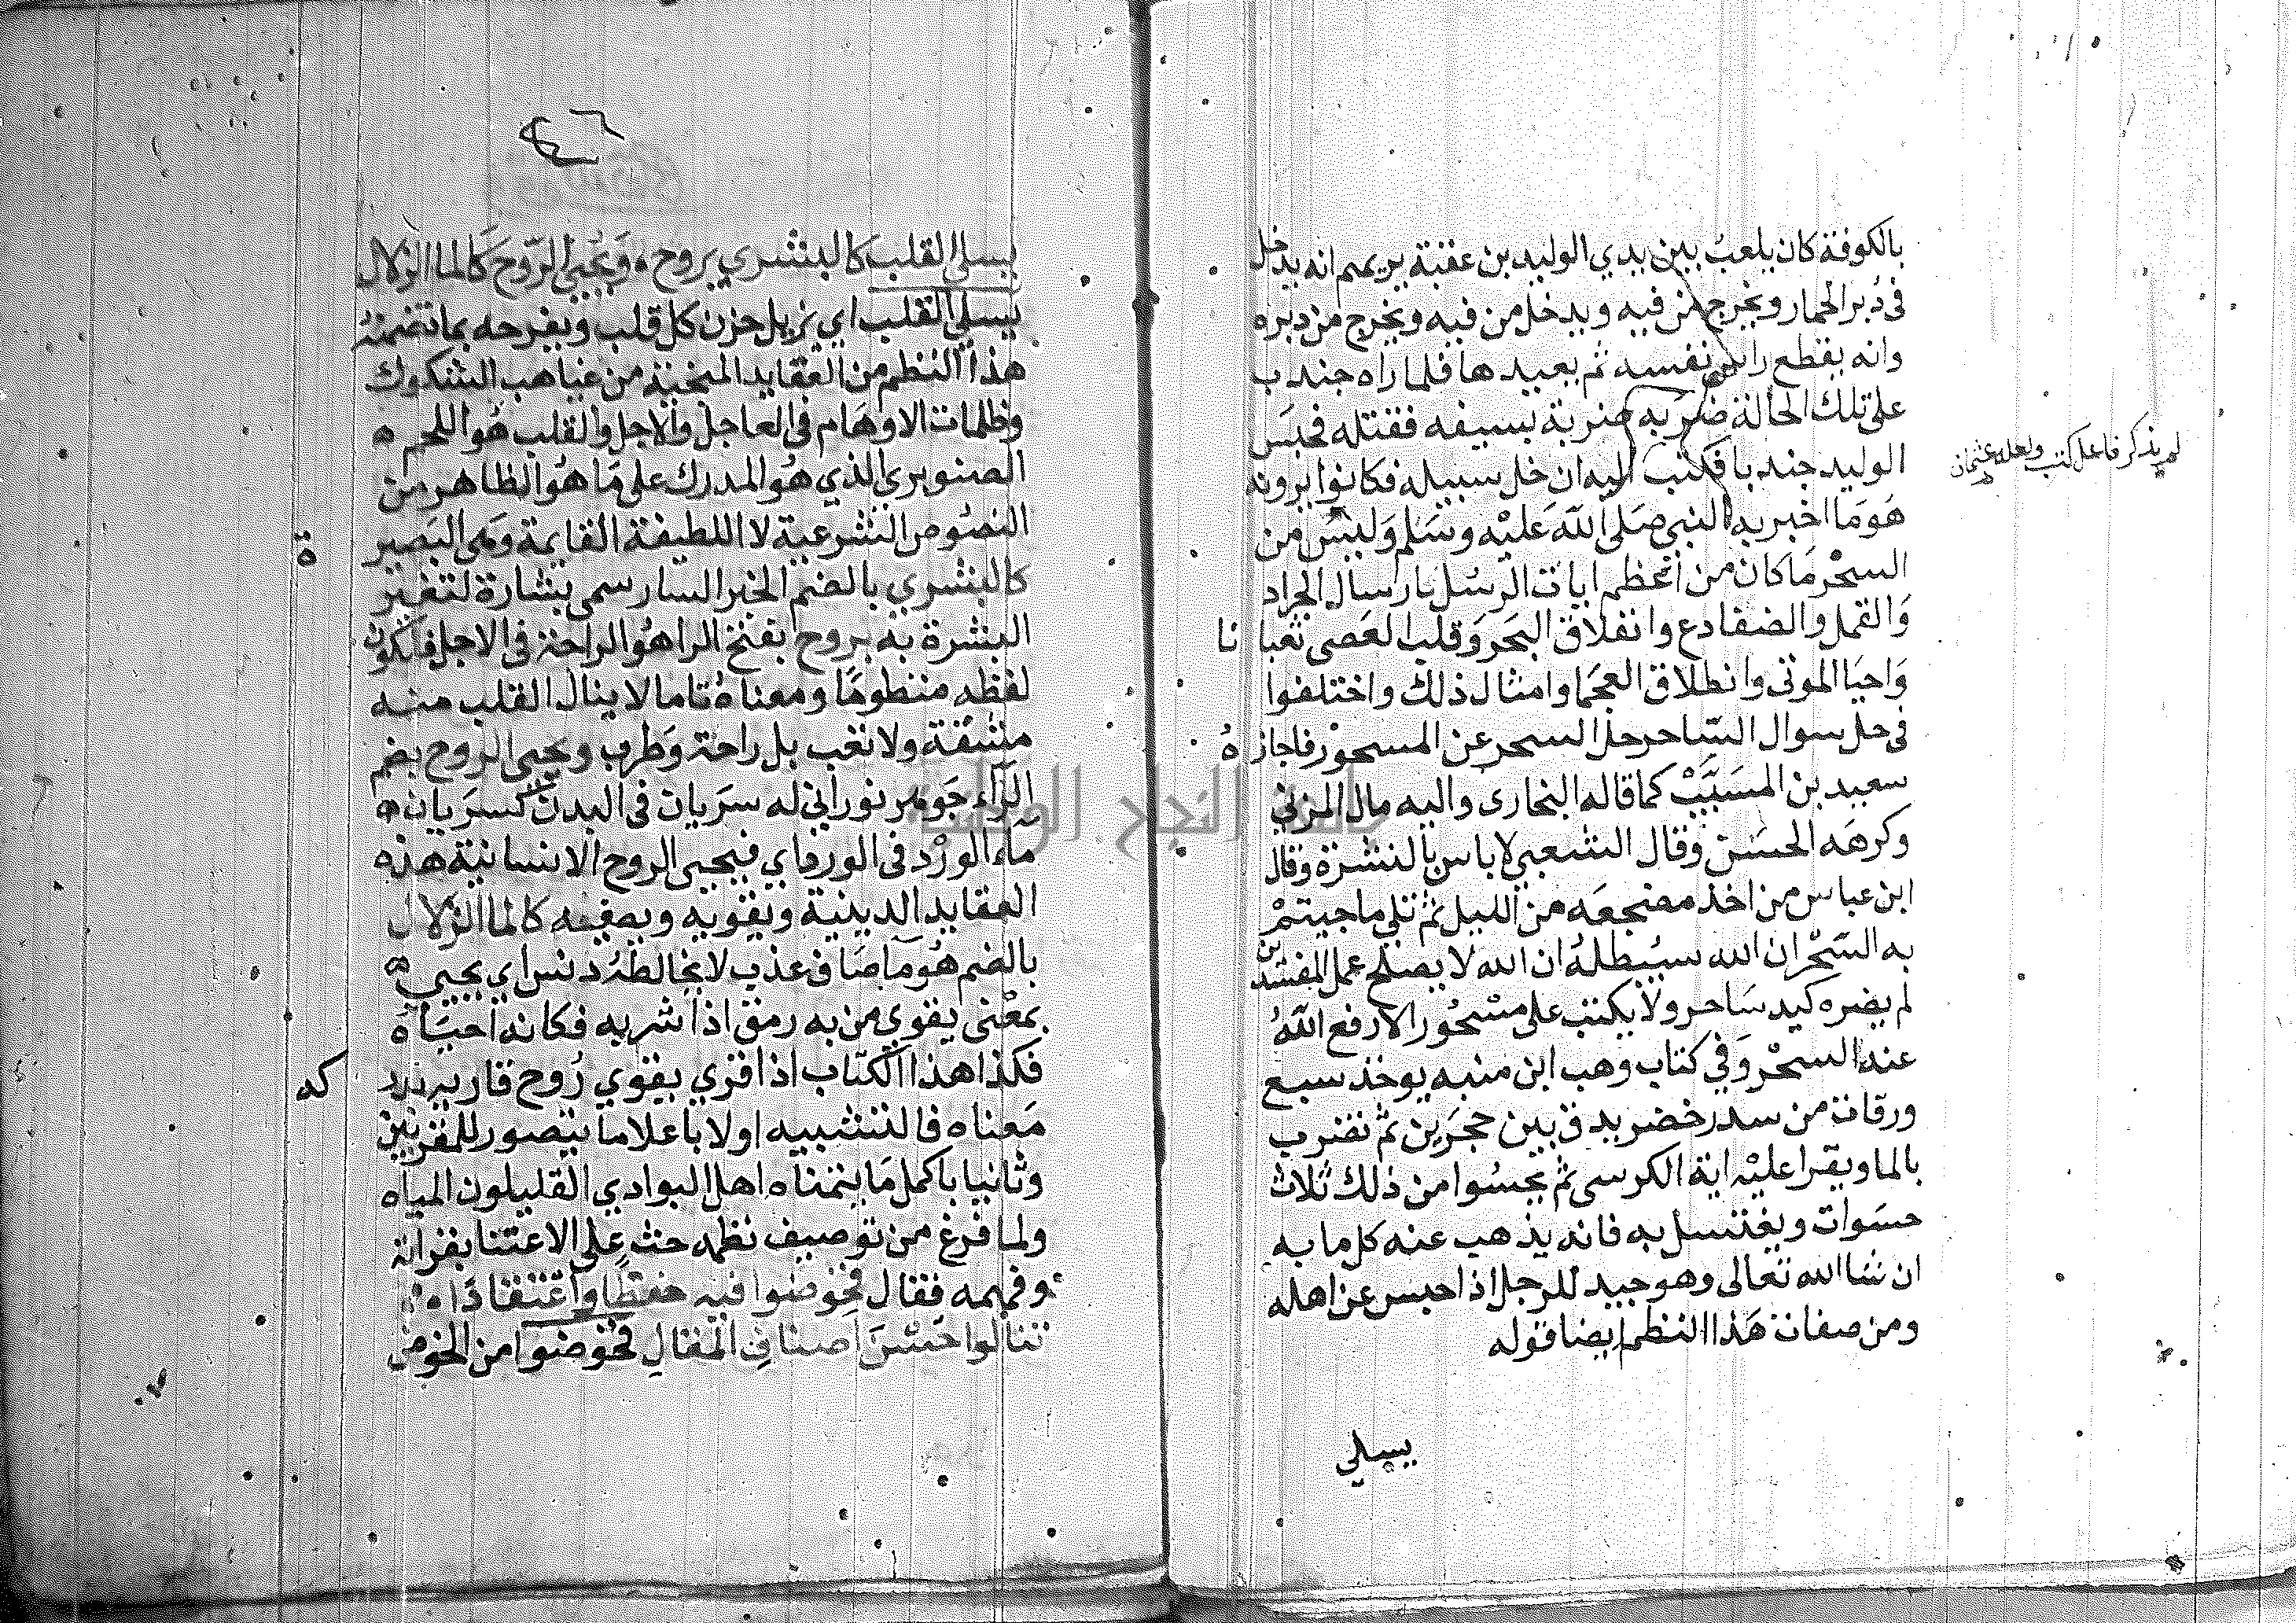 بالكوفة كان يلعب بين يدي الوليد بن عقبة يريهم انه يدخل
في دُبر الحمار ويخرج من فيه ويدخل من فيه ويخرج من دبره
وانه يقطع راس نفسه ثم يعيدها فلما راه جندب
على تلك الحالة ضربه ضربة بسيفه فقتله فحبس
الوليد جندبا فكتب اليه ان خل سبيله فكانوا يرونه
لم يذكر فاعل كتب ولعله عثمان
هو ما اخبر به النبي صلى الله عليه وسلم وليس من
السحر ما كان من اعظم ايات الرسل بارسال الجراد
والقمل والضفادع وانفلاق البحر وقلب العصى ثعبانا
واحيا الموتى وانطلاق العجما وامثال ذلك واختلفوا
في حل سوال الساحر حل السحر عن المسحور فاجازه
سعيد بن المسيَّب كما قاله البخارى واليه مال المزني
وكرهه الحسن وقال الشعبي لا باس بالنشرة وقال
ابن عباس من اخذ مضجعه من الليل ثم تلى ما جيتم
به السحر ان الله سيُبطلهُ ان الله لا يصلح عمل المفسدين
لم يضره كيد ساحر ولا يكتب على مسحور الا رفع الله
عنه السحر وفي كتاب وهب ابن منبه يوخذ سبع
ورقات من سدر خضر يدق بين حجرين ثم تضرب
بالما ويقرا عليه اية الكرسى ثم يحسوا من ذلك ثلاث
حسوات ويغتسل به فانه يذهب عنه كل ما به
ان شا الله تعالى وهو جيد للرجل اذا احبس عن اهله
ومن صفات هذا النظم ايضا قوله
يسلي
٤٦
يسلي القلب كالبشرى بروح ه ويُحيي الرّوح كالما الزلال
يسلي القلب اي يزيل حزن كل قلب ويفرحه بما تضمنهُ
هذا النظم من العقايد المنجية من غياهب الشكوك
وظلمات الاوهام في العاجل والاجل والقلب هو اللحم ه
الصنوبرى الذي هُو المدرك على مَا هُو الظاهر من
النصوص الشرعية لا اللطيفة القايمة وهى البصيرة
كالبشري بالضم الخبر السار سمى بشارة لتغير
البشرة به بروح بفتح الرا هُو الراحة في الاجل فالكون
لفظه منظومًا ومعناهُ تاما لا ينال القلب منه
مشقة ولا تعب بل راحة وطرب ويحيي الروح بضم
الرّاء جوهر نوراني له سريان في البدن كسريان ه
مآء الورد في الورد اي فيحيى الروح الانسانية هذه
العقايد الدينية ويقويه ويصفيه كالما الزلال
بالضم هُو مآ صاف عذب لا يخالطهُ دنس اي يحيي ه
بمعنى يقوي من به رمق اذا شربه فكانه احياه
فكذا هذا الكتاب اذا قري يقوي رُوح قاريه بدركه
معناه فالتشبيه اولا باعلا ما يتصور للمقربين
وثانيا باكمل ما يتمناه اهل البوادي القليلون المياه
ولما فرغ من توصيف نظمه حث على الاعتنا بقراته
وفهمه فقال فخوضوا فيه حفظًا واعتقادًا ه
تنالوا حسن اصناف المقال فخوضوا من الخوض